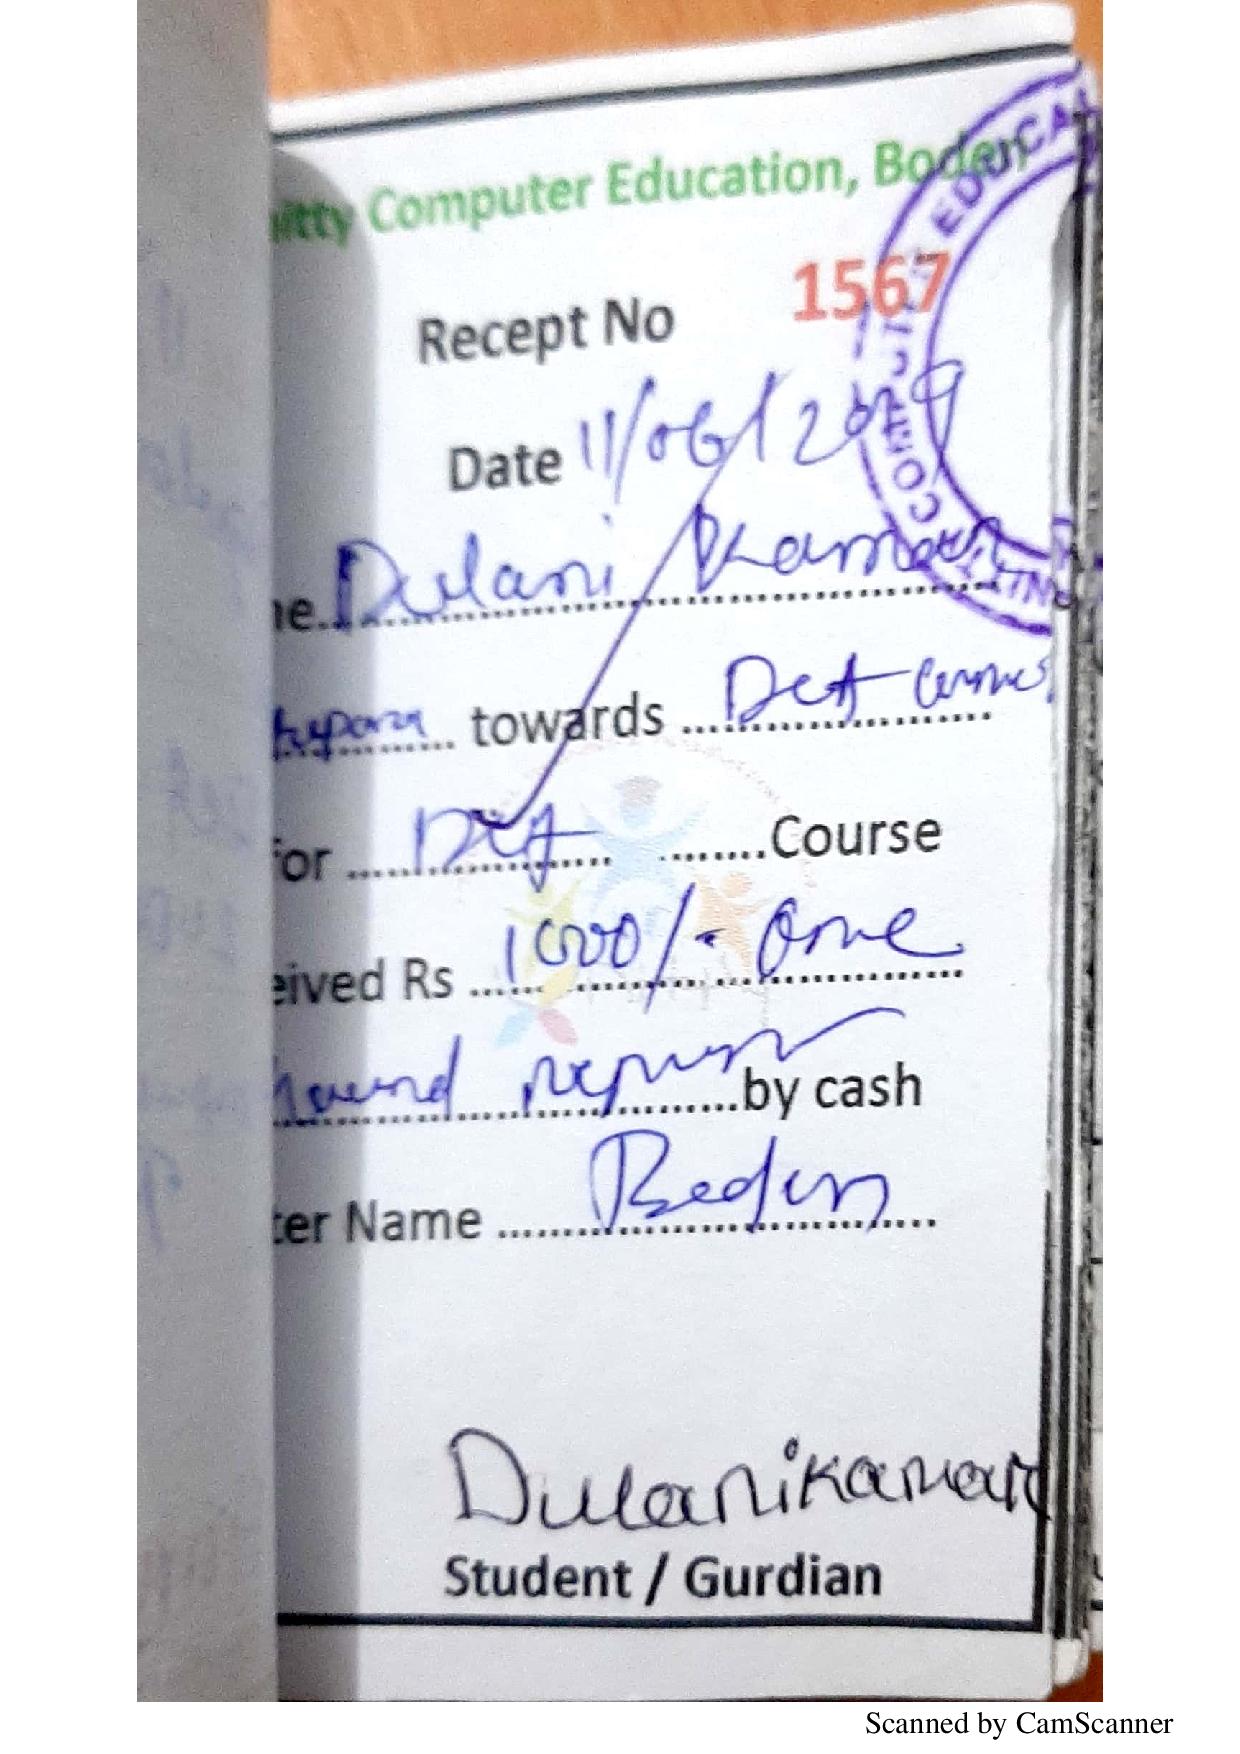 itty Computer Education, Boden
EDUCA
Recept No 1567
Date 11/06/2019
Dulani Kamar
towards DCA
for DCA Course
eived Rs 1000/- One
by cash
ter Name Boden
Dulanikamar
Student / Gurdian
Scanned by CamScanner